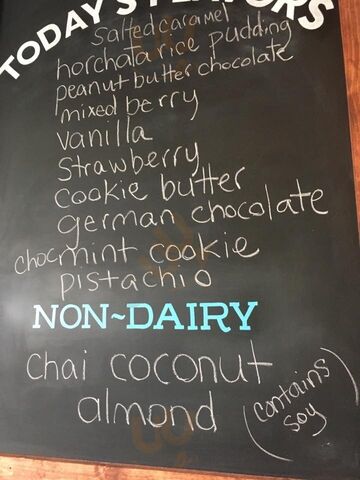 TODAY'S FLAVORS
Salted caramel
horchata rice pudding
peanut butter chocolate
mixed berry
vanilla
Strawberry
Cookie butter
german chocolate
choc mint cookie
pistachio
NON~DAIRY
chai coconut
almond
(contains
soy)